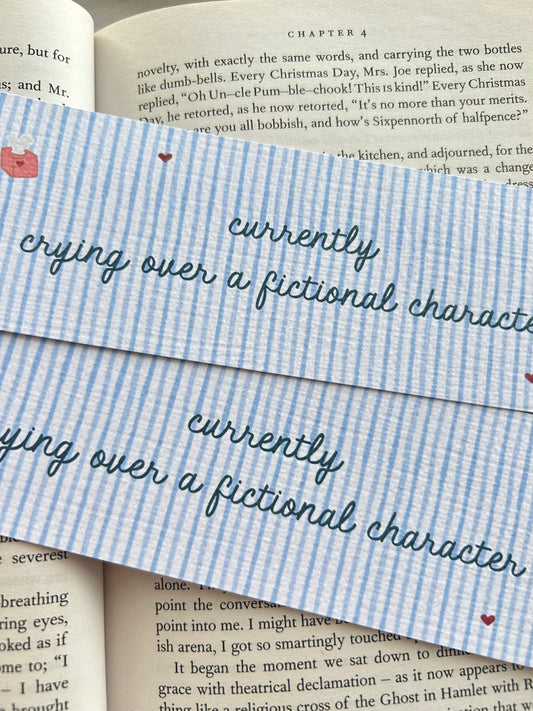 CHAPTER 4
ure, but for
s; and Mr.
novelty, with exactly the same words, and carrying the two bottles
like dumb-bells. Every Christmas Day, Mrs. Joe replied, as she now
replied, "Oh Un–cle Pum–ble–chook! This is kind!" Every Christmas
Day, he retorted, as he now retorted, "It's no more than your merits.
are you all bobbish, and how's Sixpennorth of halfpence?"
the kitchen, and adjourned, for the
which was a change
dress
currently
crying over a fictional characte
currently
ying over a fictional character
severest
-breathing
ring eyes,
oked as if
me to; "I
– I have
brought
alone.
point the conversa
point into me. I might have
ish arena, I got so smartingly touched
It began the moment we sat down to dinn
grace with theatrical declamation – as it now appears to
thing like a religious cross of the Ghost in Hamlet with R